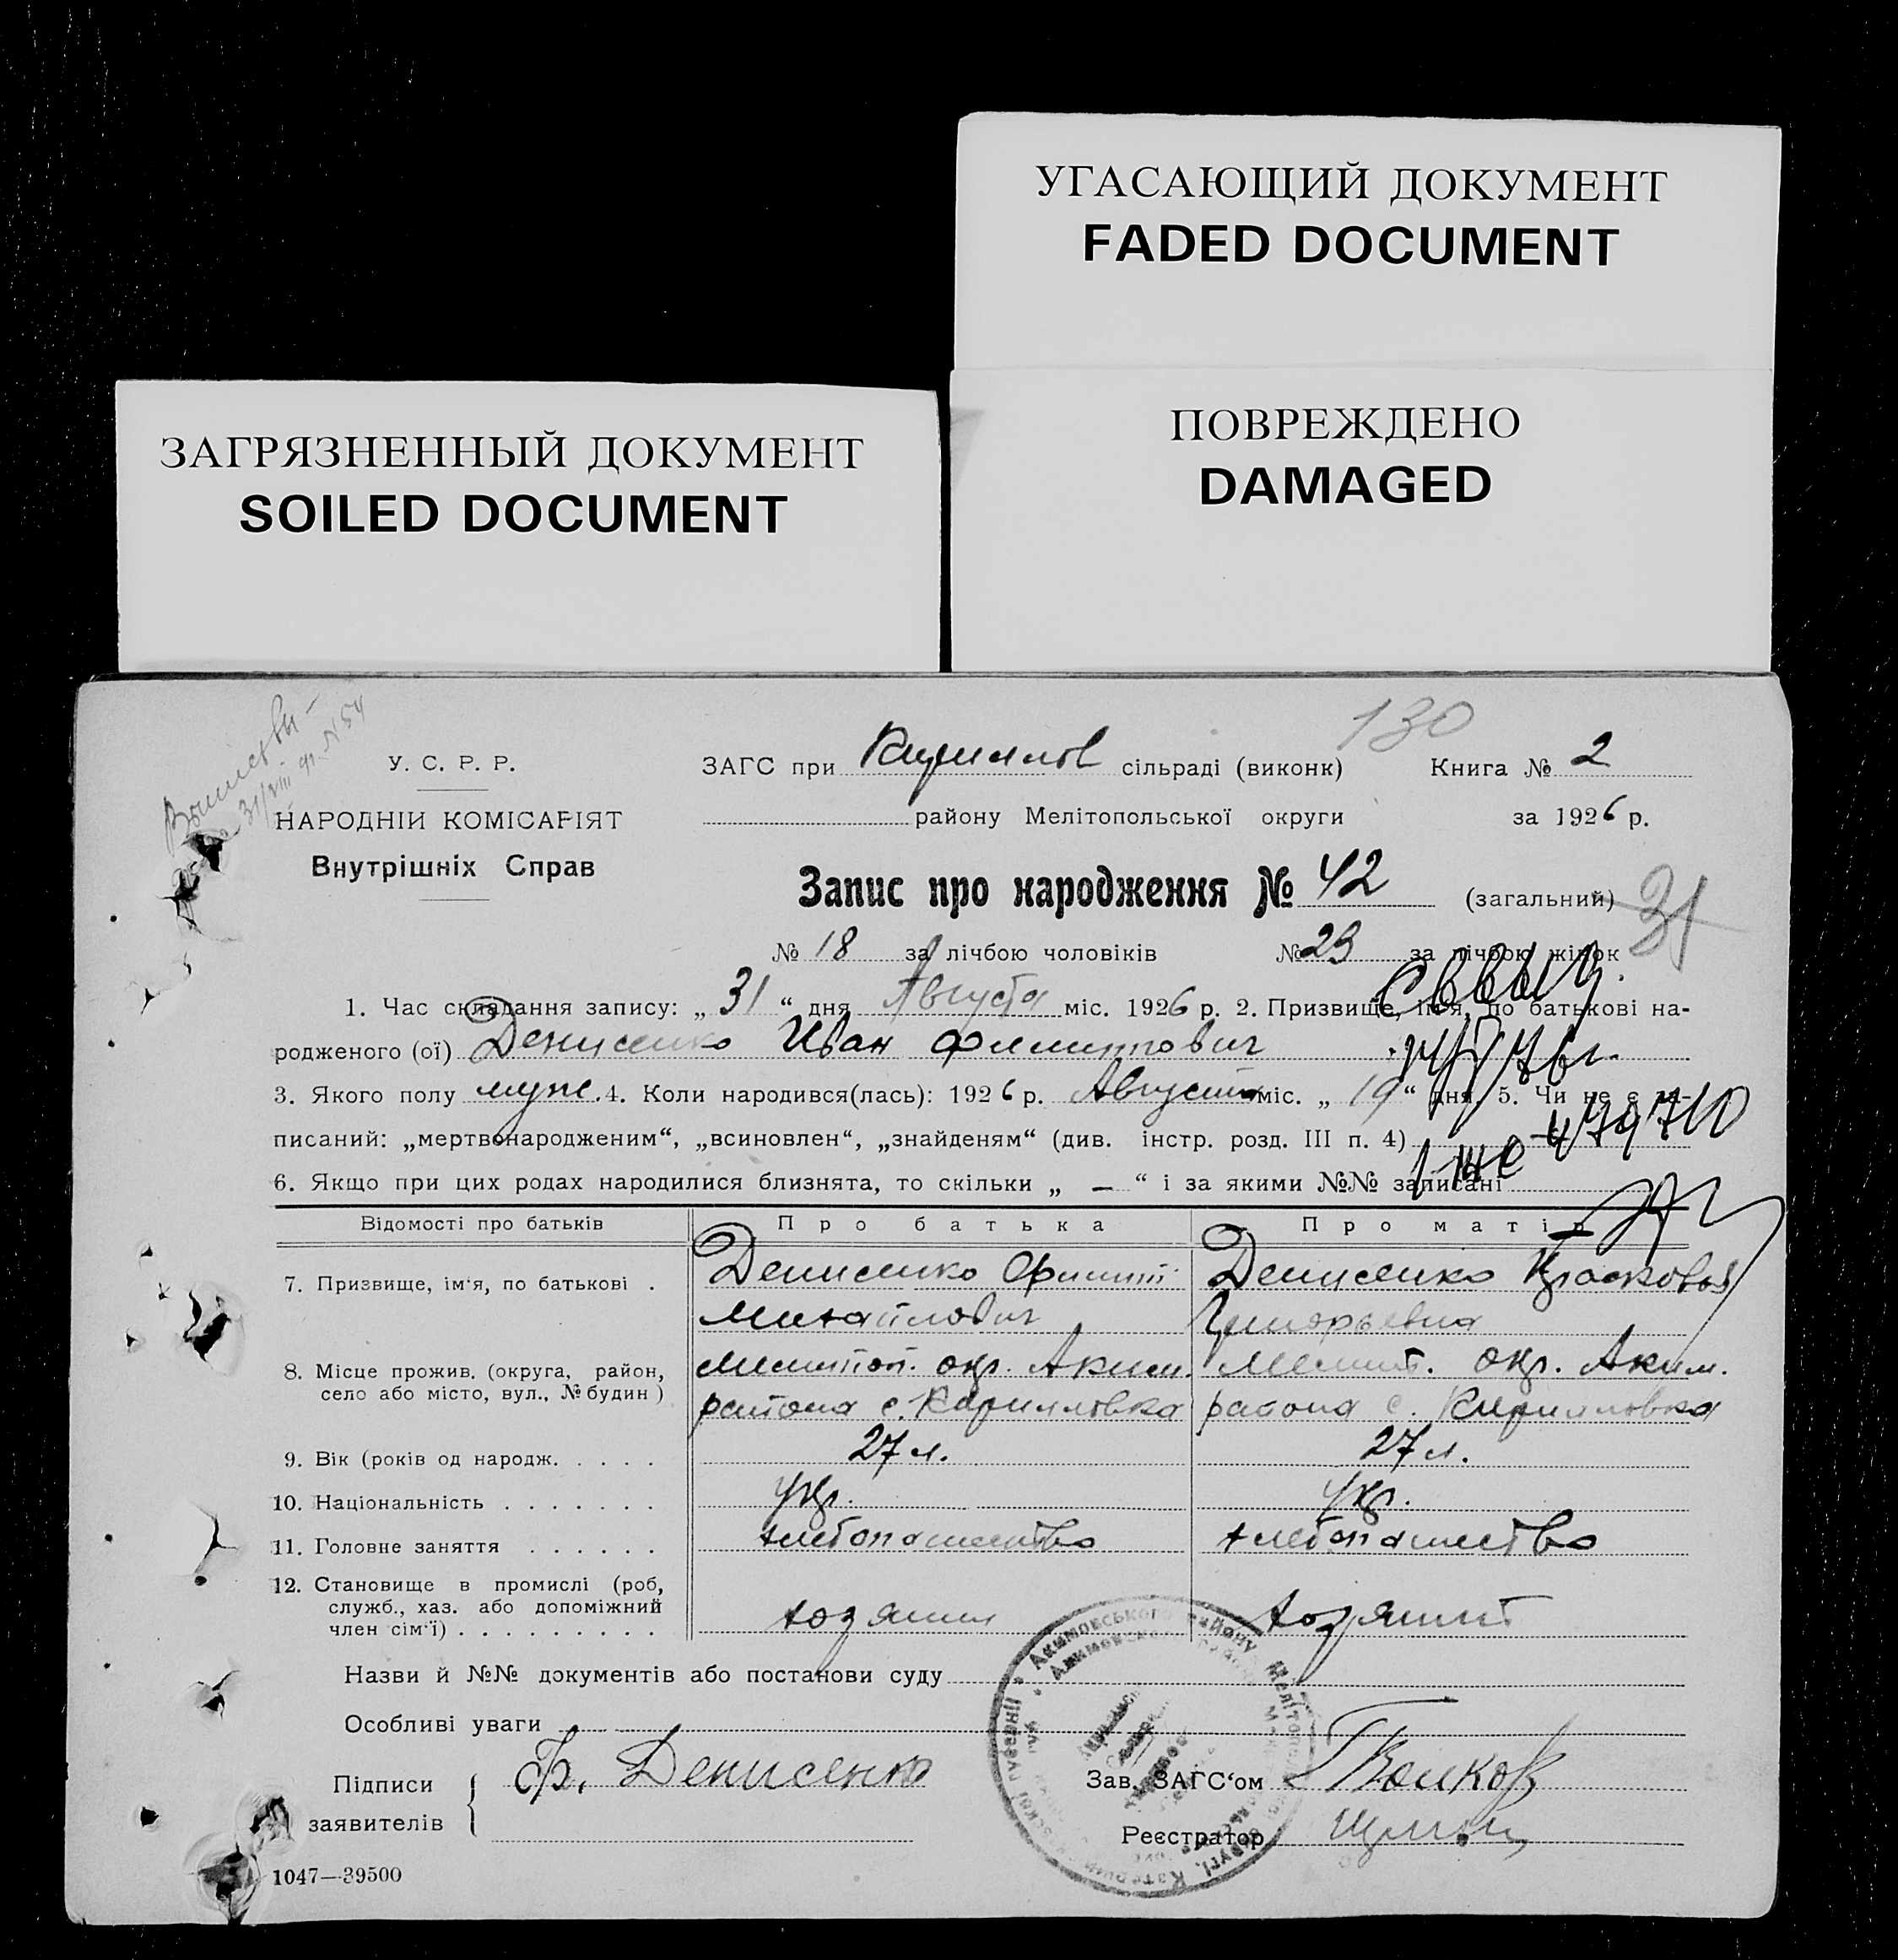 УГАСАЮЩИЙ ДОКУМЕНТ
FADED DOCUMENT
ПОВРЕЖДЕНО
DAMAGED
ЗАГРЯЗНЕННЫЙ ДОКУМЕНТ
SOILED DOCUMENT
130
У. С. Р. Р.
ЗАГС при Кирилов сільраді (виконк) Книга № 2
НАРОДНІЙ КОМІСАРІЯТ
району Мелітопольської округи за 1926 р.
Внутрішніх Справ
Запис про народження № 42 (загальний) 31
№ 18 за лічбою чоловіків № 23 за лічбою жінок
1. Час складання запису: „ 31 “ дня Августа міс. 1926 р. 2. Призвище, ім'я, по батькові на-
родженого (ої) Денисенко Иван Филиппович
3. Якого полу муж. 4. Коли народився(лась): 1926 р. Августа міс. „ 19 “ дня. 5. Чи не є за-
писаний: „мертвонародженим“, „всиновлен“, „знайденям“ (див. інстр. розд. III п. 4)
6. Якщо при цих родах народилися близнята, то скільки „ — “ і за якими №№ записані
Відомості про батьків Про батька Про матір
7. Призвище, ім'я, по батькові . Денисенко Филипп Денисенко Прасковья
Михайлович Григорьевна
8. Місце прожив. (округа, район, Мелитоп. окр. Аким. Мелит. окр. Аким.
село або місто, вул., № будин) района с. Кирилловка района с. Кирилловка
9. Вік (років од народж. . . . . 27 л. 27 л.
10. Національність . . . . . . . укр. укр.
11. Головне заняття . . . . . . хлебопашество хлебопашество
12. Становище в промислі (роб,
служб., хаз. або допоміжний хозяин
член сім'ї) . . . . . . . . .
Назви й №№ документів або постанови суду
Особливі уваги
Підписи Ф. Денисенко Зав. ЗАГС'ом Волков
заявителів Реєстратор
1047—39500